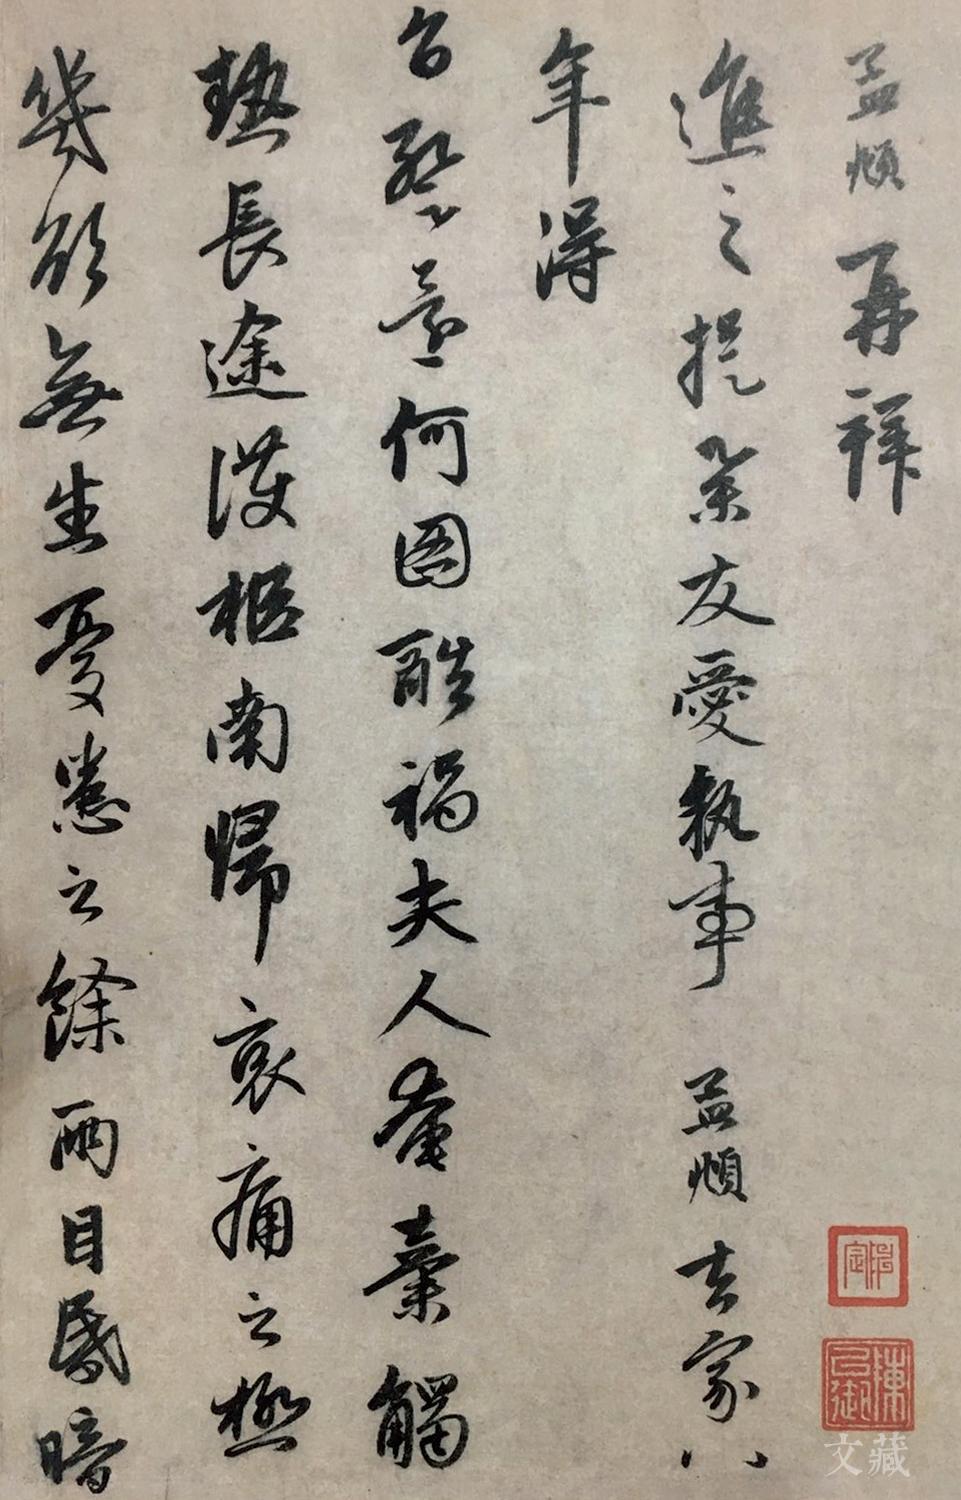 孟頫再拜
進之提舉友愛執事孟頫去家八
年得
旨暫還何圖酷禍夫人奄棄觸
熱長途護柩南歸哀痛之極
幾欲無生憂患之餘兩目昏暗
文藏